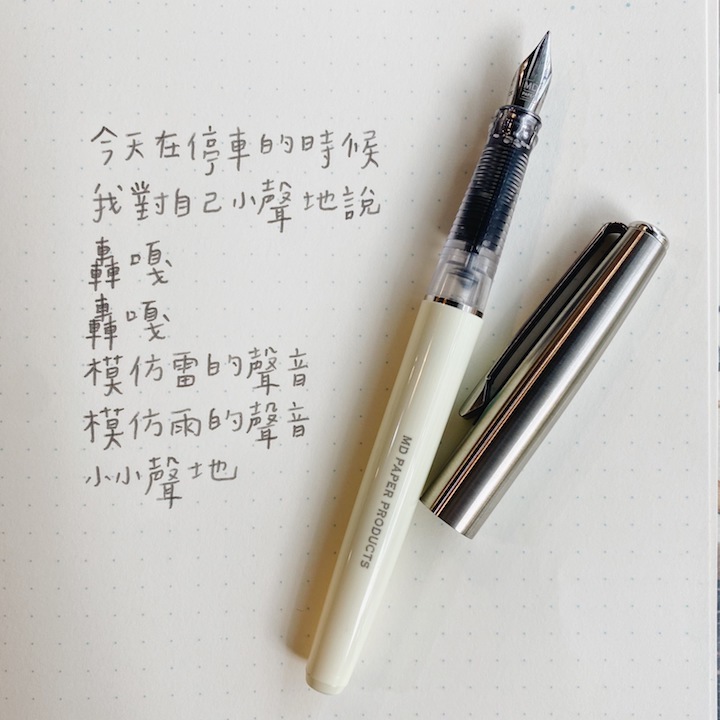 今天在停車的時候
我對自己小聲地說
轟嘎
轟嘎
模仿雷的聲音
模仿雨的聲音
小小聲地
MD PAPER PRODUCTS
MD